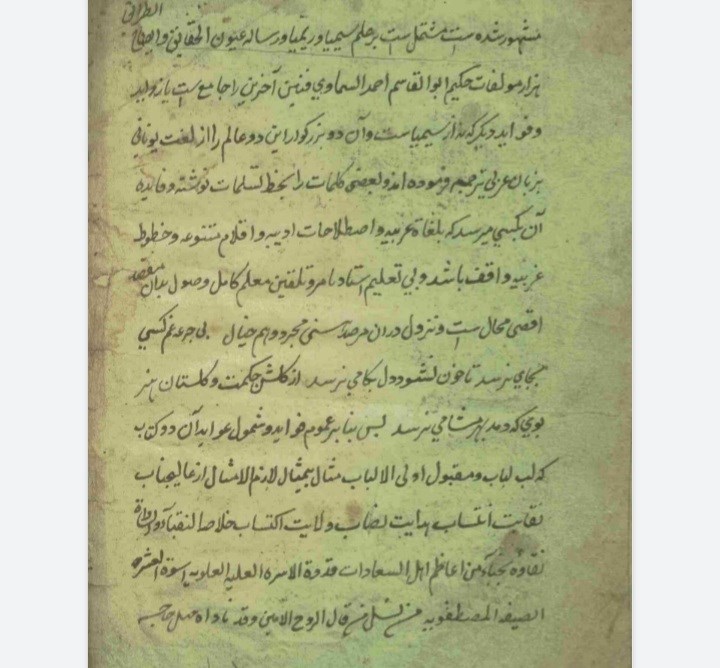 مشهور شده است مشتمل است بر علم سیمیا و ریمیا و رساله عیون الحقایق و ایضاح الطرائق
هزار مولفات حکیم ابو القاسم احمد السماوی فنین آخرین را جامع است با زواید
و فواید دیگر که نه از سیمیاست و آن دو بزرگوار این دو عالم را از لغت یونانی
بزبان عربی ترجمه فرموده اند و بعضی کلمات را بخط لسلمات نوشته و فایده
آن بکسی میرسد که بلغاة غریبه و اصطلاحات ادبیه و اقلام متنوعه و خطوط
غریبه واقف باشد و بی تعلیم استاد ماهر و تلقین معلم کامل وصول بدان مقصد
اقصی محال است و نزول در ان مرصد اسنی مجرد وهم خیال بی جرعه غم کسی
بجای نرسد تا خون نشود دل بکامی نرسد از گلشن حکمت و گلستان هنر
بوی که دمد بهر مشامی نرسد پس بنا بر عموم فواید و شمول عواید آن دو کتاب
که لب لباب و مقبول اولی الالباب مثال بیمثال لازم الامتثال از عالیجناب
نقابت انتساب هدایت نصاب ولایت اکتساب خلاصه النقباء
نقاوه نجباء من اعاظم اهل السعادات قدوة الاسرة العلیه العلویه اسوة العشره
الصفیه المصطفویه من نسل من قال الروح الامین وقد ناداه